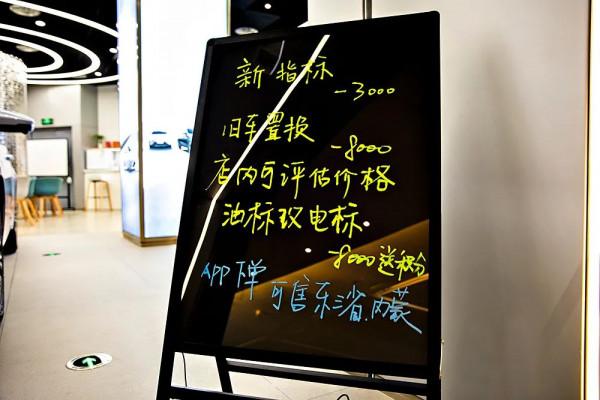 新指标
-3000
旧车置换
-8000
店内可评估价格
油标改电标
-8000送积分
APP下单
可售东三省.内蒙